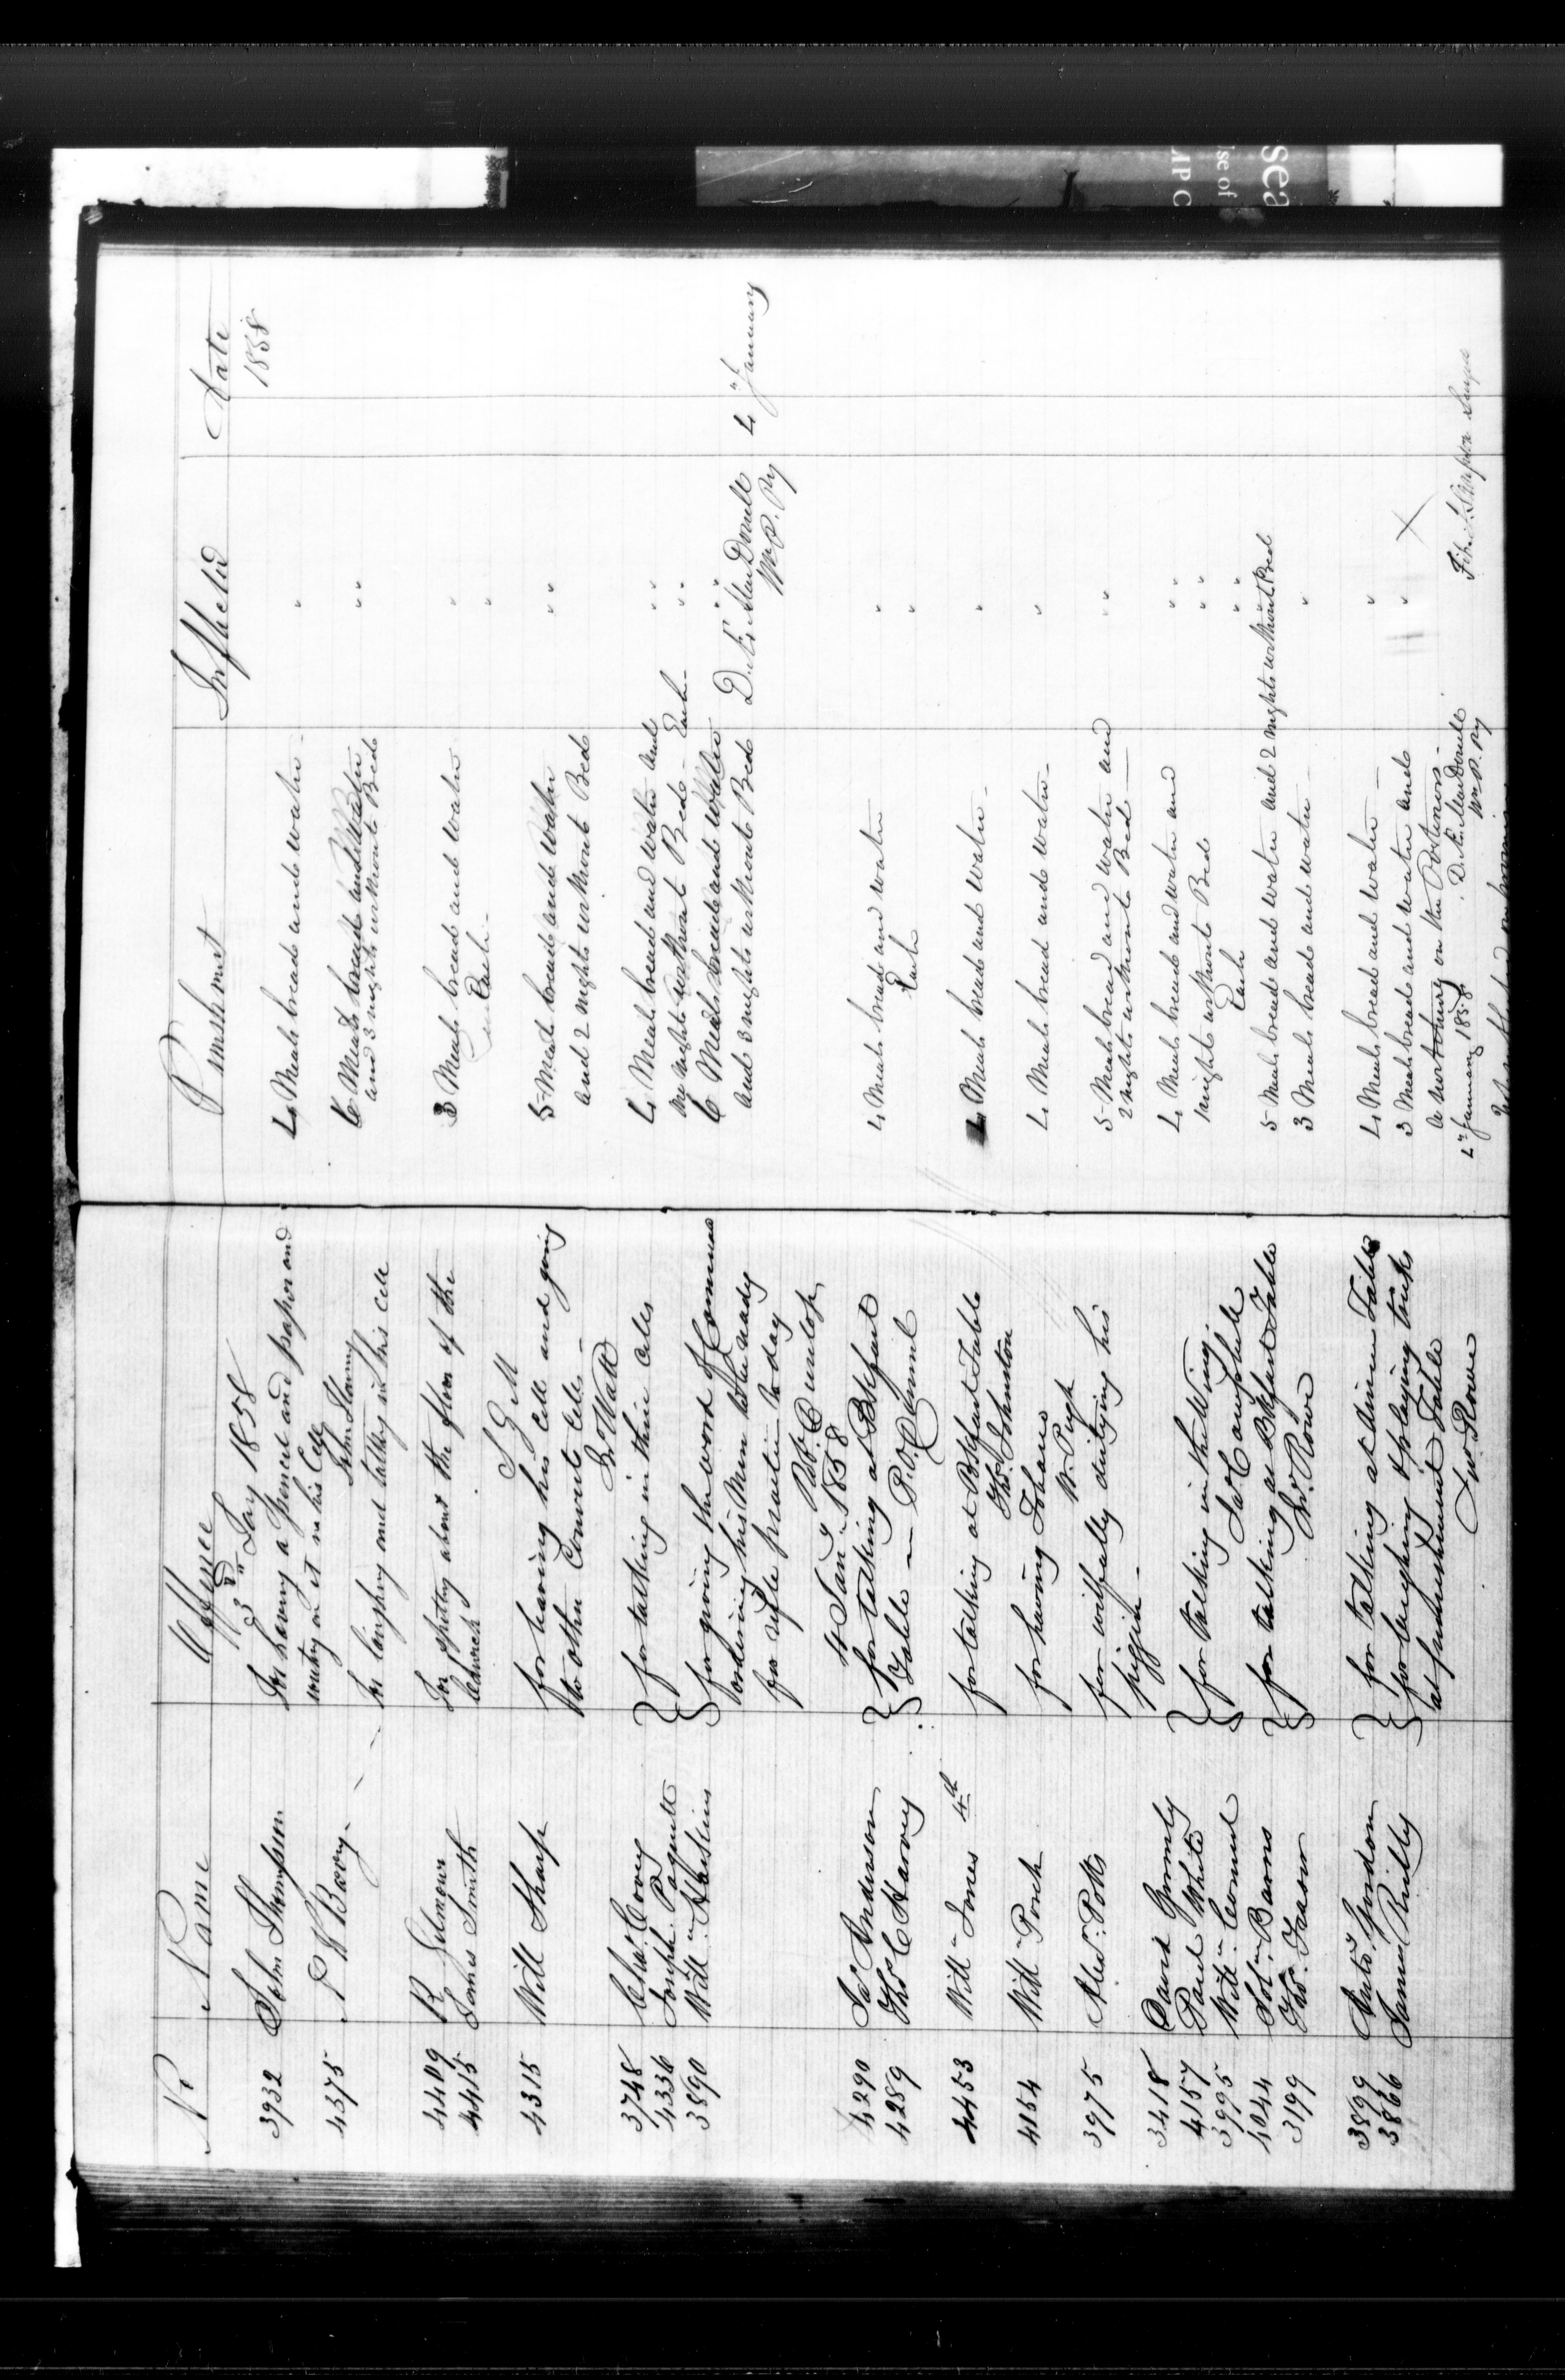 No Name Offence Punishment Inflicted Date
3rd Jany 1858 1858
3932 John Thompson For having a Pencil and paper and 4 Meals bread and water "
writing on it in his Cell
John Flanning
4375 P W Barry - For laughing and talking in his cell 6 Meals bread and Water " "
and 3 nights without Bed
4409 R Gilmour For spitting about the floor of the 3 Meals bread and water "
4415 James Smith Church Each "
S G M
4315 Will Sharp for leaving his Cell and going 5 Meals bread and Water " "
to other Convicts Cells - and 2 nights without Bed
Jno Watt
3748 Chas Corey for talking in their Cells 4 Meals bread and water and " "
4336 Joseph Paquette one night without Bed - Each " "
3890 Willm Haskins for giving the word of Command 6 Meals bread and Water " "
ordering his Men to be ready and 3 nights without Bed D. Æ. MacDonell 4th January
for rifle practice to day W. P. Py
Robt Dunlop
4th Jany 1858
4290 Jas Anderson for talking at Bkfast 4 Meals bread and water "
4289 Thos C Harvey Table P. O. Connel Each "
4453 Willm Jones 4th for talking at Bkfast Table 4 Meals bread and Water - "
Thos Johnston
4154 Willm Ponch for having Tobacco 4 Meals bread and water - "
W. Pugh
3975 Alexr Potts for willfully dirtying his 5 Meals bread and water and " "
piggin - 2 nights without Bed -
3418 David Gormly for talking in the Wing. 4 Meals bread and water and " "
4157 Paul White Jas Campbell 1 night without Bed " "
3995 Willm Connel Each " "
4044 Soln Barns for talking at Bkfast Table 5 Meals bread and Water and 2 nights without Bed
3199 Thos Frasour W. Rowe 3 Meals bread and water - "
3899 Anto Gordon for talking at dinner Table 4 Meals bread and Water - "
3866 James Reilly for laughing & playing tricks 3 Meals bread and water and "
at punishment Table
Jno Rowe
4th January 1858 D. Æ. MacDonell
W. P. Py